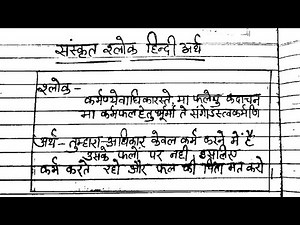 संस्कृत श्लोक हिन्दी अर्थ
श्लोक-
कर्मण्येवाधिकारस्ते, मा फलेषु कदाचन
मा कर्मफलहेतुर्भूर्मा ते संगोडस्त्वकर्मणि
अर्थ- तुम्हारा अधिकार केवल कर्म करने में है
उसके फलों पर नही, इसलिए
कर्म करते रहो और फल की चिंता मत करो